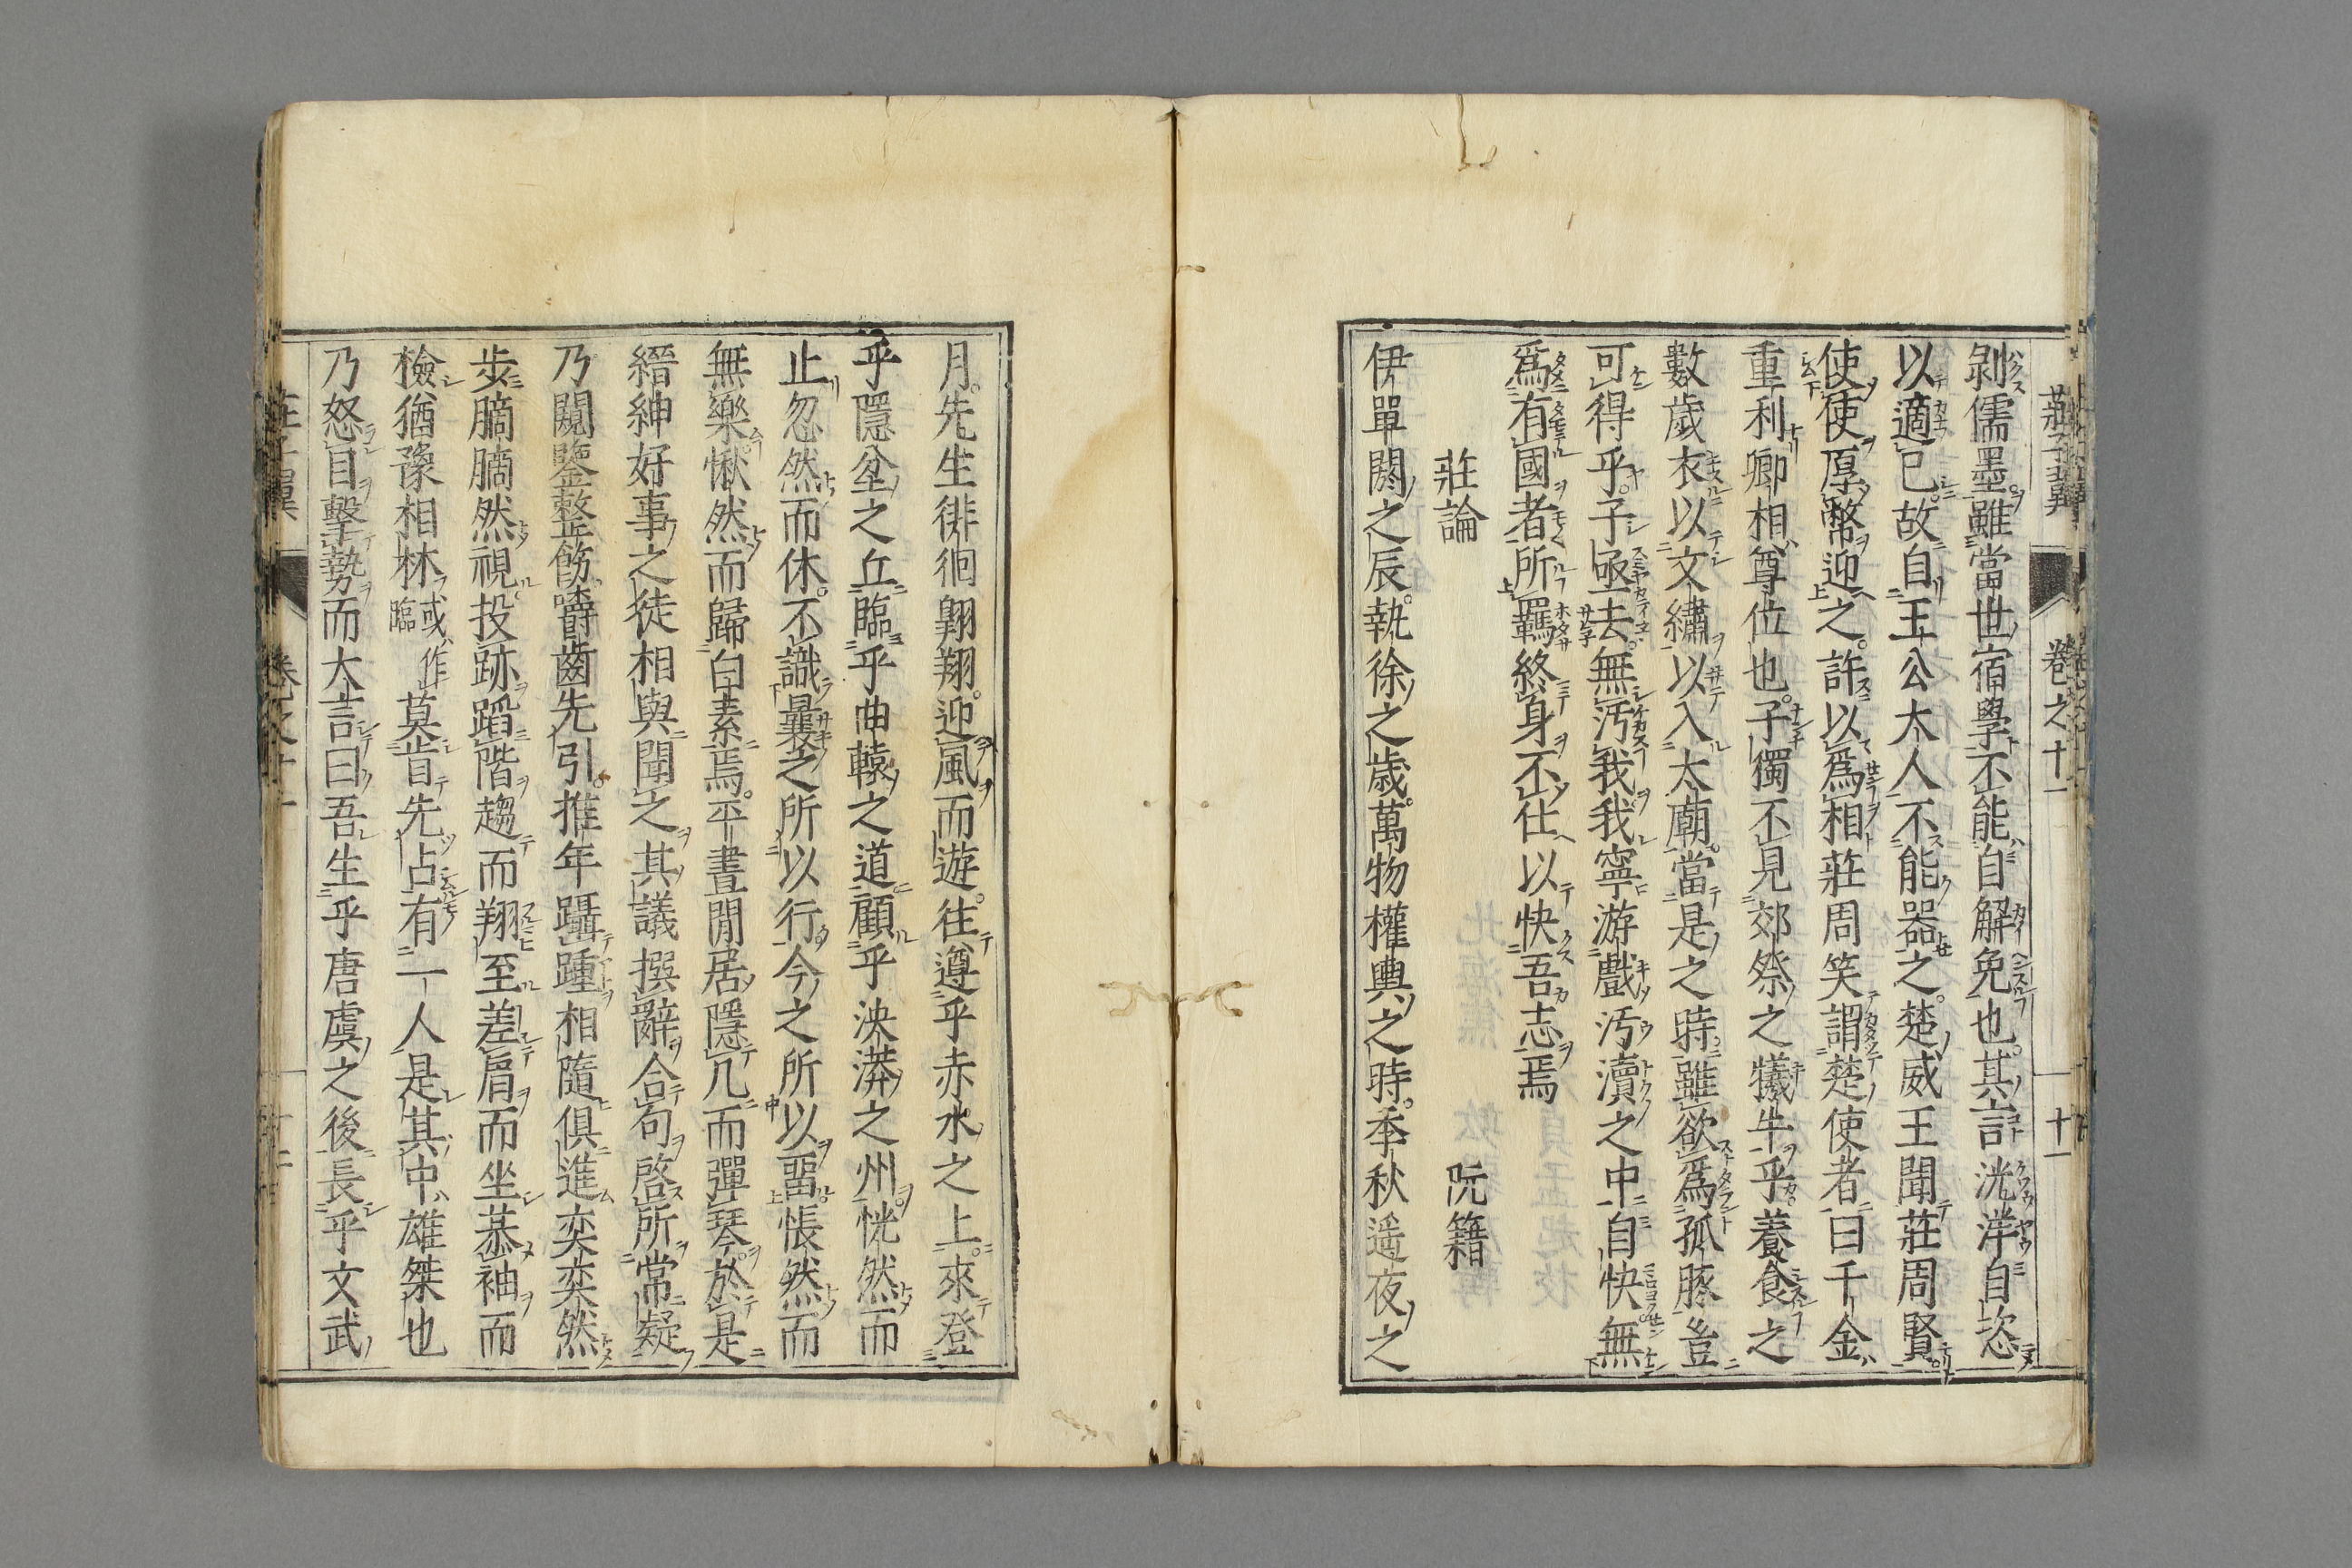 莊子翼 卷之十一 十一
剥儒墨雖當世宿學不能自解免也其言洸洋自恣
以適已故自王公大人不能器之楚威王聞莊周賢
使使厚幣迎之許以爲相莊周笑謂楚使者曰千金
重利卿相尊位也子獨不見郊祭之犧牛乎養食之
數歲衣以文繡以入太廟當是之時雖欲爲孤豚豈
可得乎子亟去無汚我我寧游戲汚瀆之中自快無
爲有國者所羈終身不仕以快吾志焉
莊論 阮籍
伊單閼之辰執徐之歲萬物權輿之時季秋遥夜之
月先生徘徊翺翔迎風而遊徃遵乎赤水之上來登
乎隱坌之丘臨乎曲轅之道顧乎泱漭之州恍然而
止忽然而休不識曩之所以行今之所以畱悵然而
無樂愀然而歸白素焉平晝閒居隱几而彈琴於是
縉紳好事之徒相與聞之其議撰辭合句啓所常疑
乃闚鑒整飭嚼齒先引推年躡踵相隨俱進奕奕然
步䐧䐧然視投跡蹈階趨而翔至差肩而坐恭袖而
檢猶豫相林或作臨莫肯先占有一人是其中雄桀也
乃怒目擊勢而大言曰吾生乎唐虞之後長乎文武